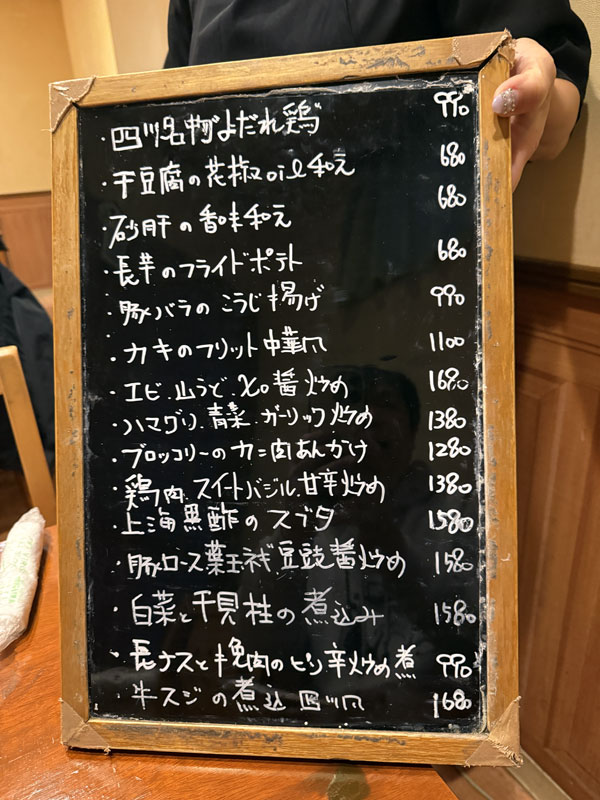 ・四川名物よだれ鶏 990
・干豆腐の花椒oil和え 680
・砂肝の香味和え 680
・長芋のフライドポテト 680
・豚バラのこうじ揚げ 990
・カキのフリット中華風 1100
・エビ、山うど、XO醤炒め 1680
・ハマグリ、青菜、ガーリック炒め 1380
・ブロッコリーのカニ肉あんかけ 1280
・鶏肉、スイートバジル、甘辛炒め 1380
・上海黒酢のスブタ 1580
・豚ロース葉玉ネギ豆豉醤炒め 1580
・白菜と干貝柱の煮込み 1580
・長ナスと挽肉のピリ辛炒め煮 990
・牛スジの煮込 四川風 1680